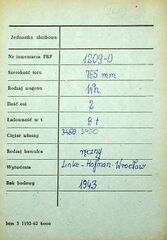 Jednostka służbowa
Nr inwentarza PKP 1209-0
Szerokość toru 785 mm
Rodzaj wagonu Wh
Ilość osi 2
Ładowność w t. 8 t
Ciężar własny 3450 3450
Rodzaj hamulca ręczny
Wytwórnia Linke-Hofman-Wrocław
Rok budowy 1943